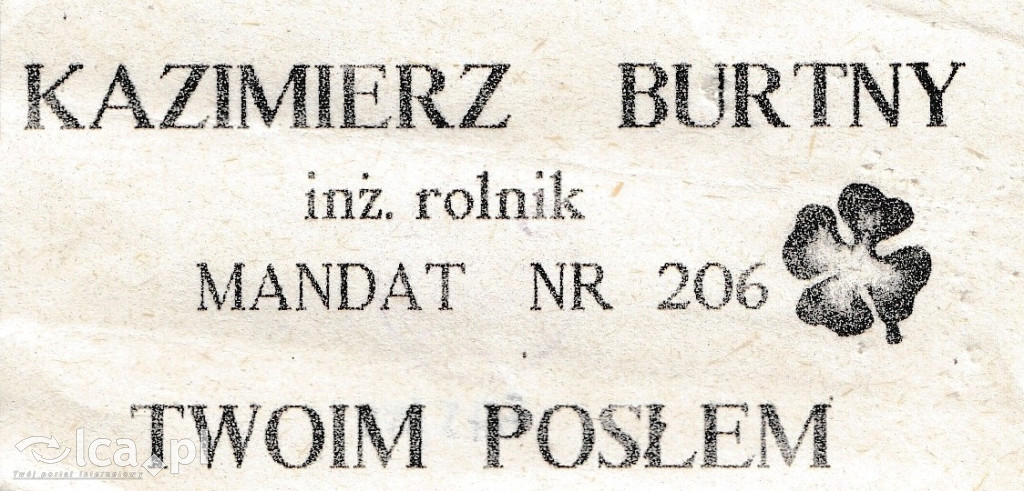 KAZIMIERZ BURTNY
inż. rolnik
MANDAT NR 206
TWOIM POSŁEM
lca.pl
Twój portal internetowy